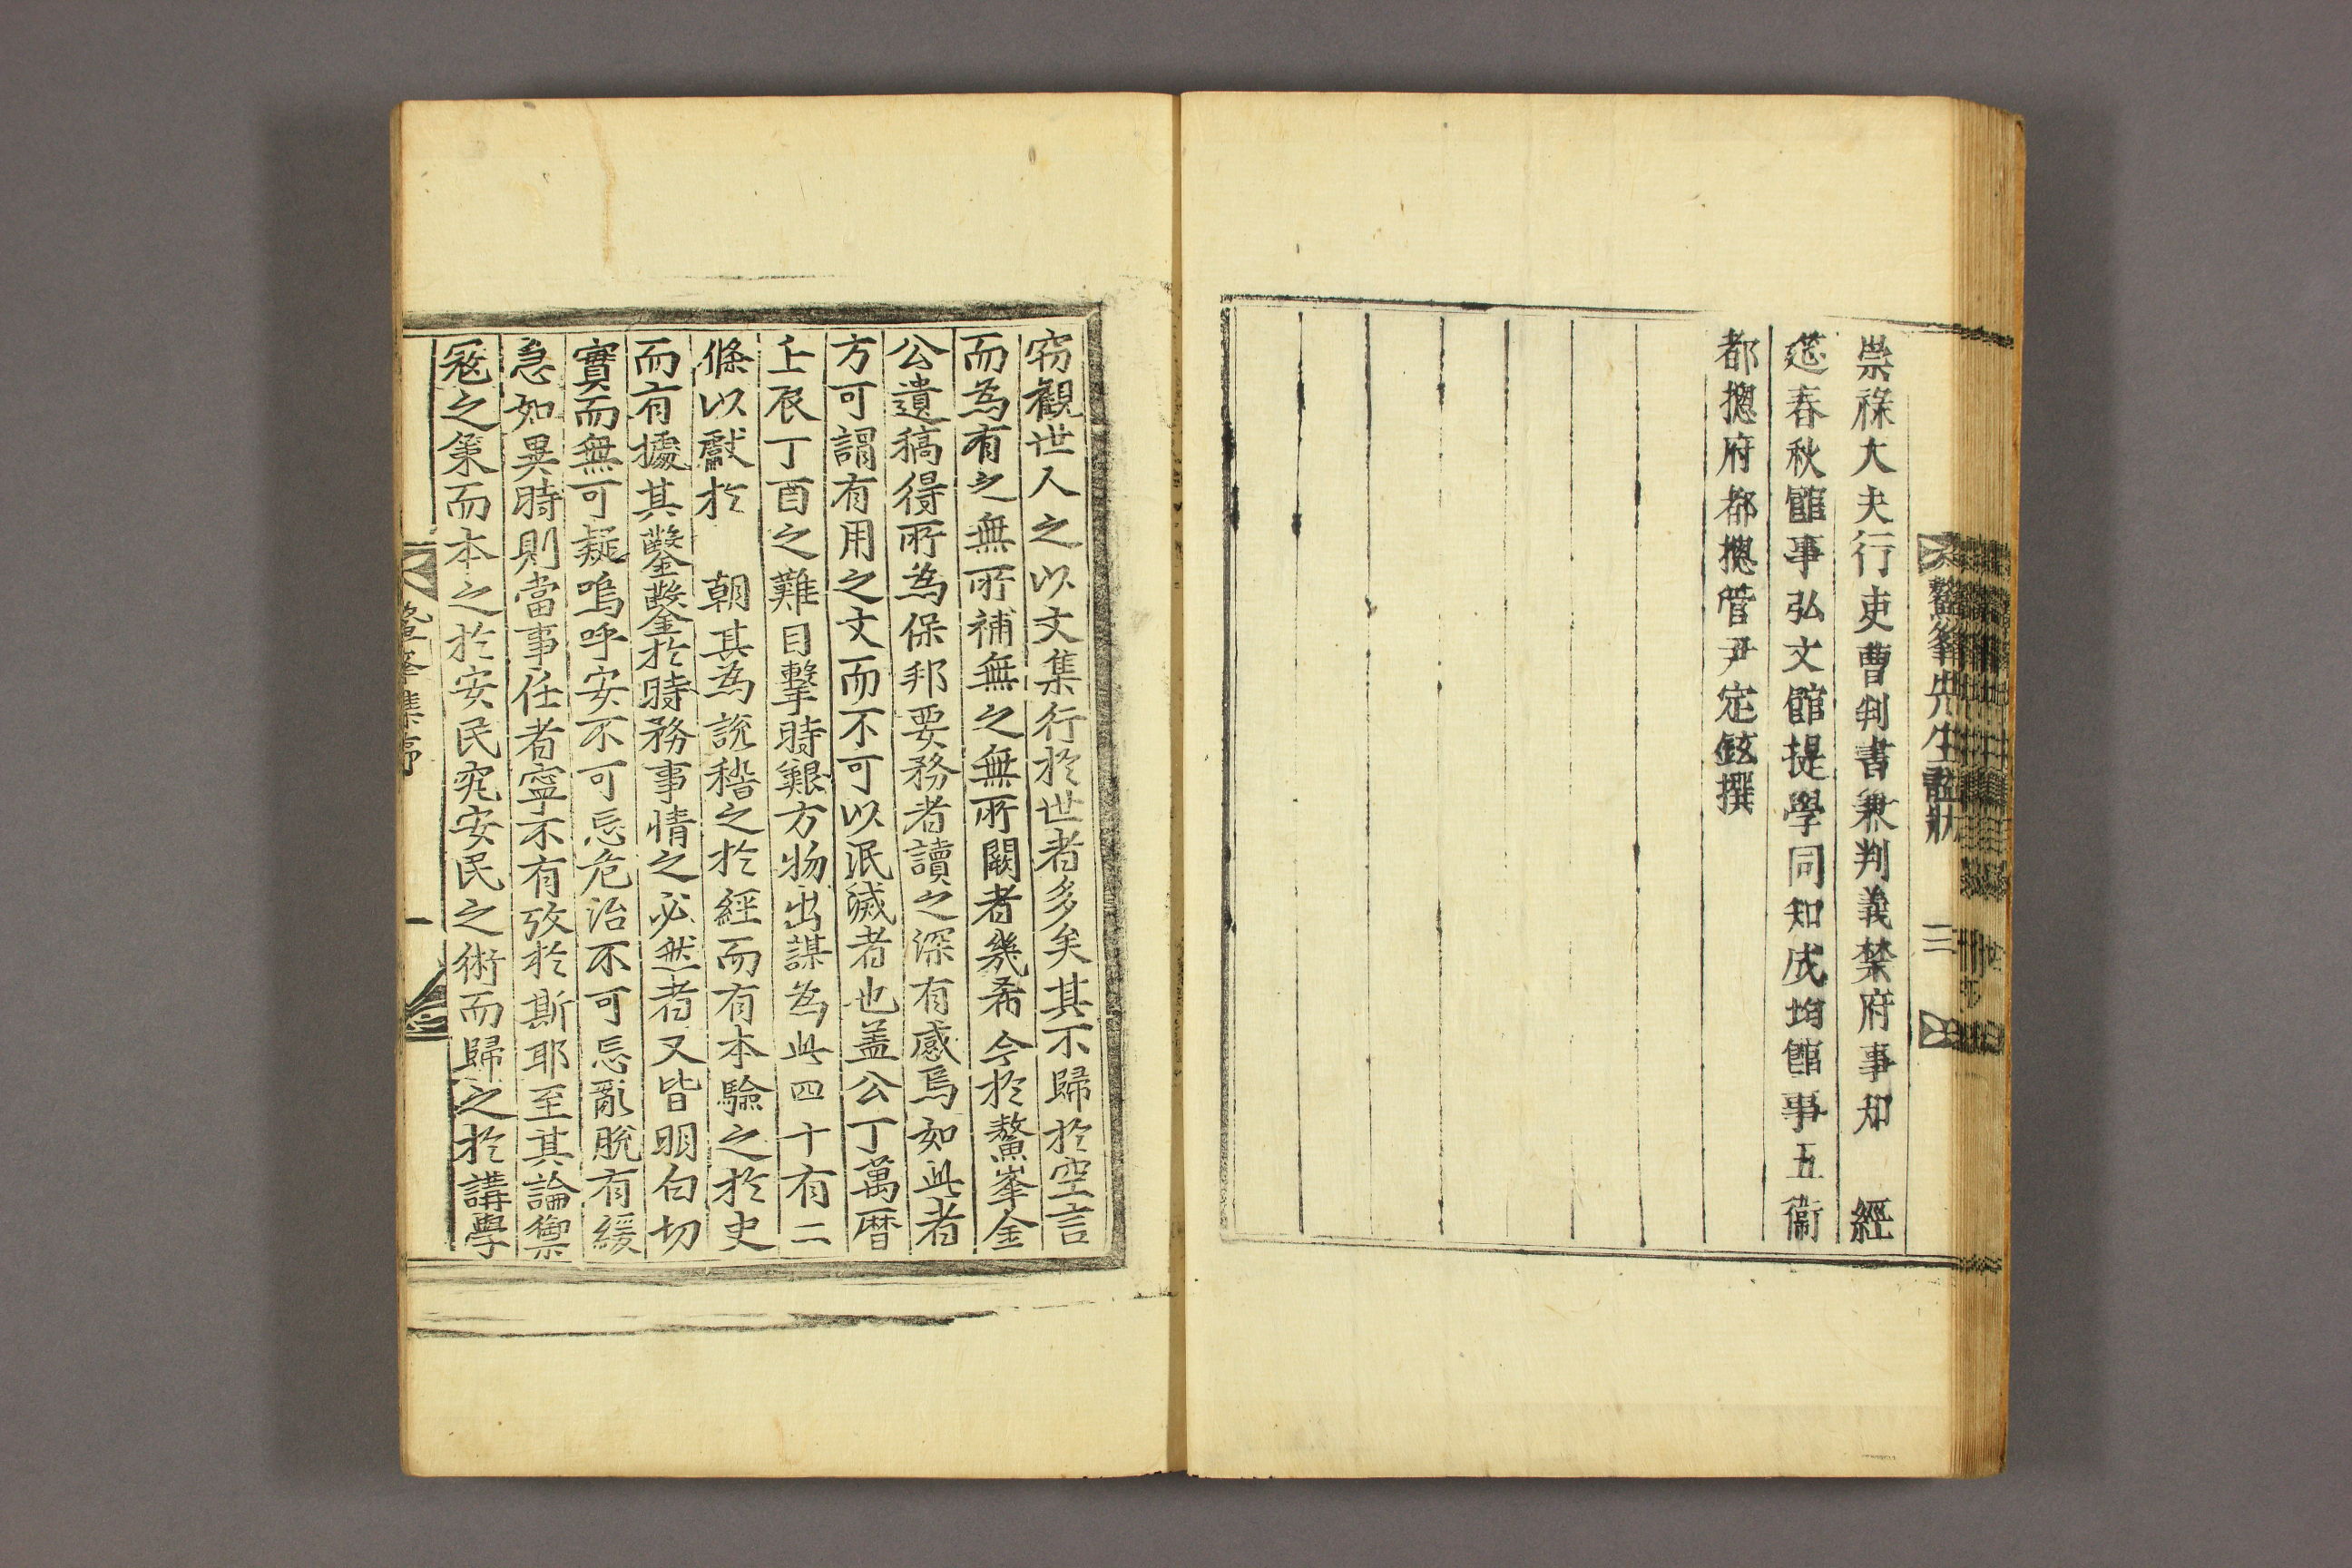 崇祿大夫行吏曹判書兼判義禁府事知　經
筵春秋館事弘文館提學同知成均館事五衛
都摠府都摠管尹定鉉撰
鰲峯先生諡狀　三
窃觀世人之以文集行於世者多矣其不歸於空言
而為有之無所補無之無所闕者幾希今於鰲峯金
公遺稿得所為保邦要務者讀之深有感焉如此者
方可謂有用之文而不可以泯滅者也盖公丁萬曆
壬辰丁酉之難目擊時艱方物出謀為此四十有二
條以獻於　朝其為說稽之於經而有本驗之於史
而有據其鑿鑿於時務事情之必然者又皆明白切
實而無可疑嗚呼安不可忘危治不可忘亂脫有緩
急如異時則當事任者寧不有攷於斯耶至其論禦
寇之策而本之於安民究安民之術而歸之於講學
鰲峯集序　一